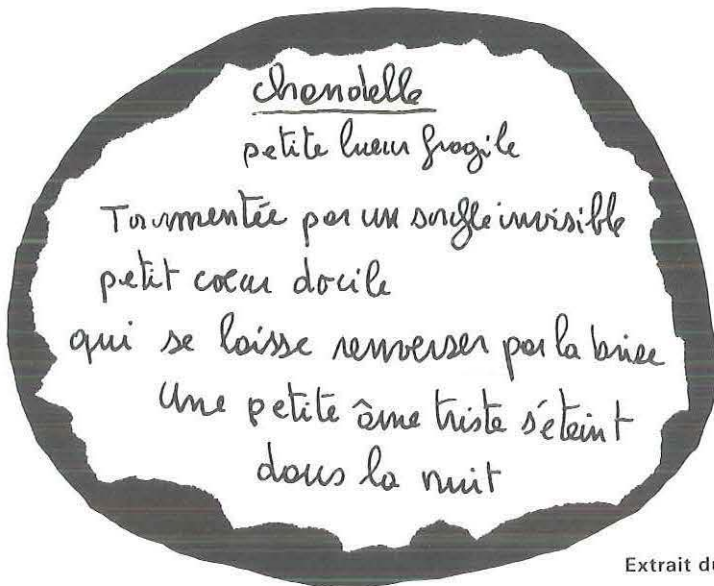 chandelle
petite lueur fragile
Tourmentée par un souffle invisible
petit coeur docile
qui se laisse renverser par la brise
Une petite âme triste s'éteint
dans la nuit
Extrait du